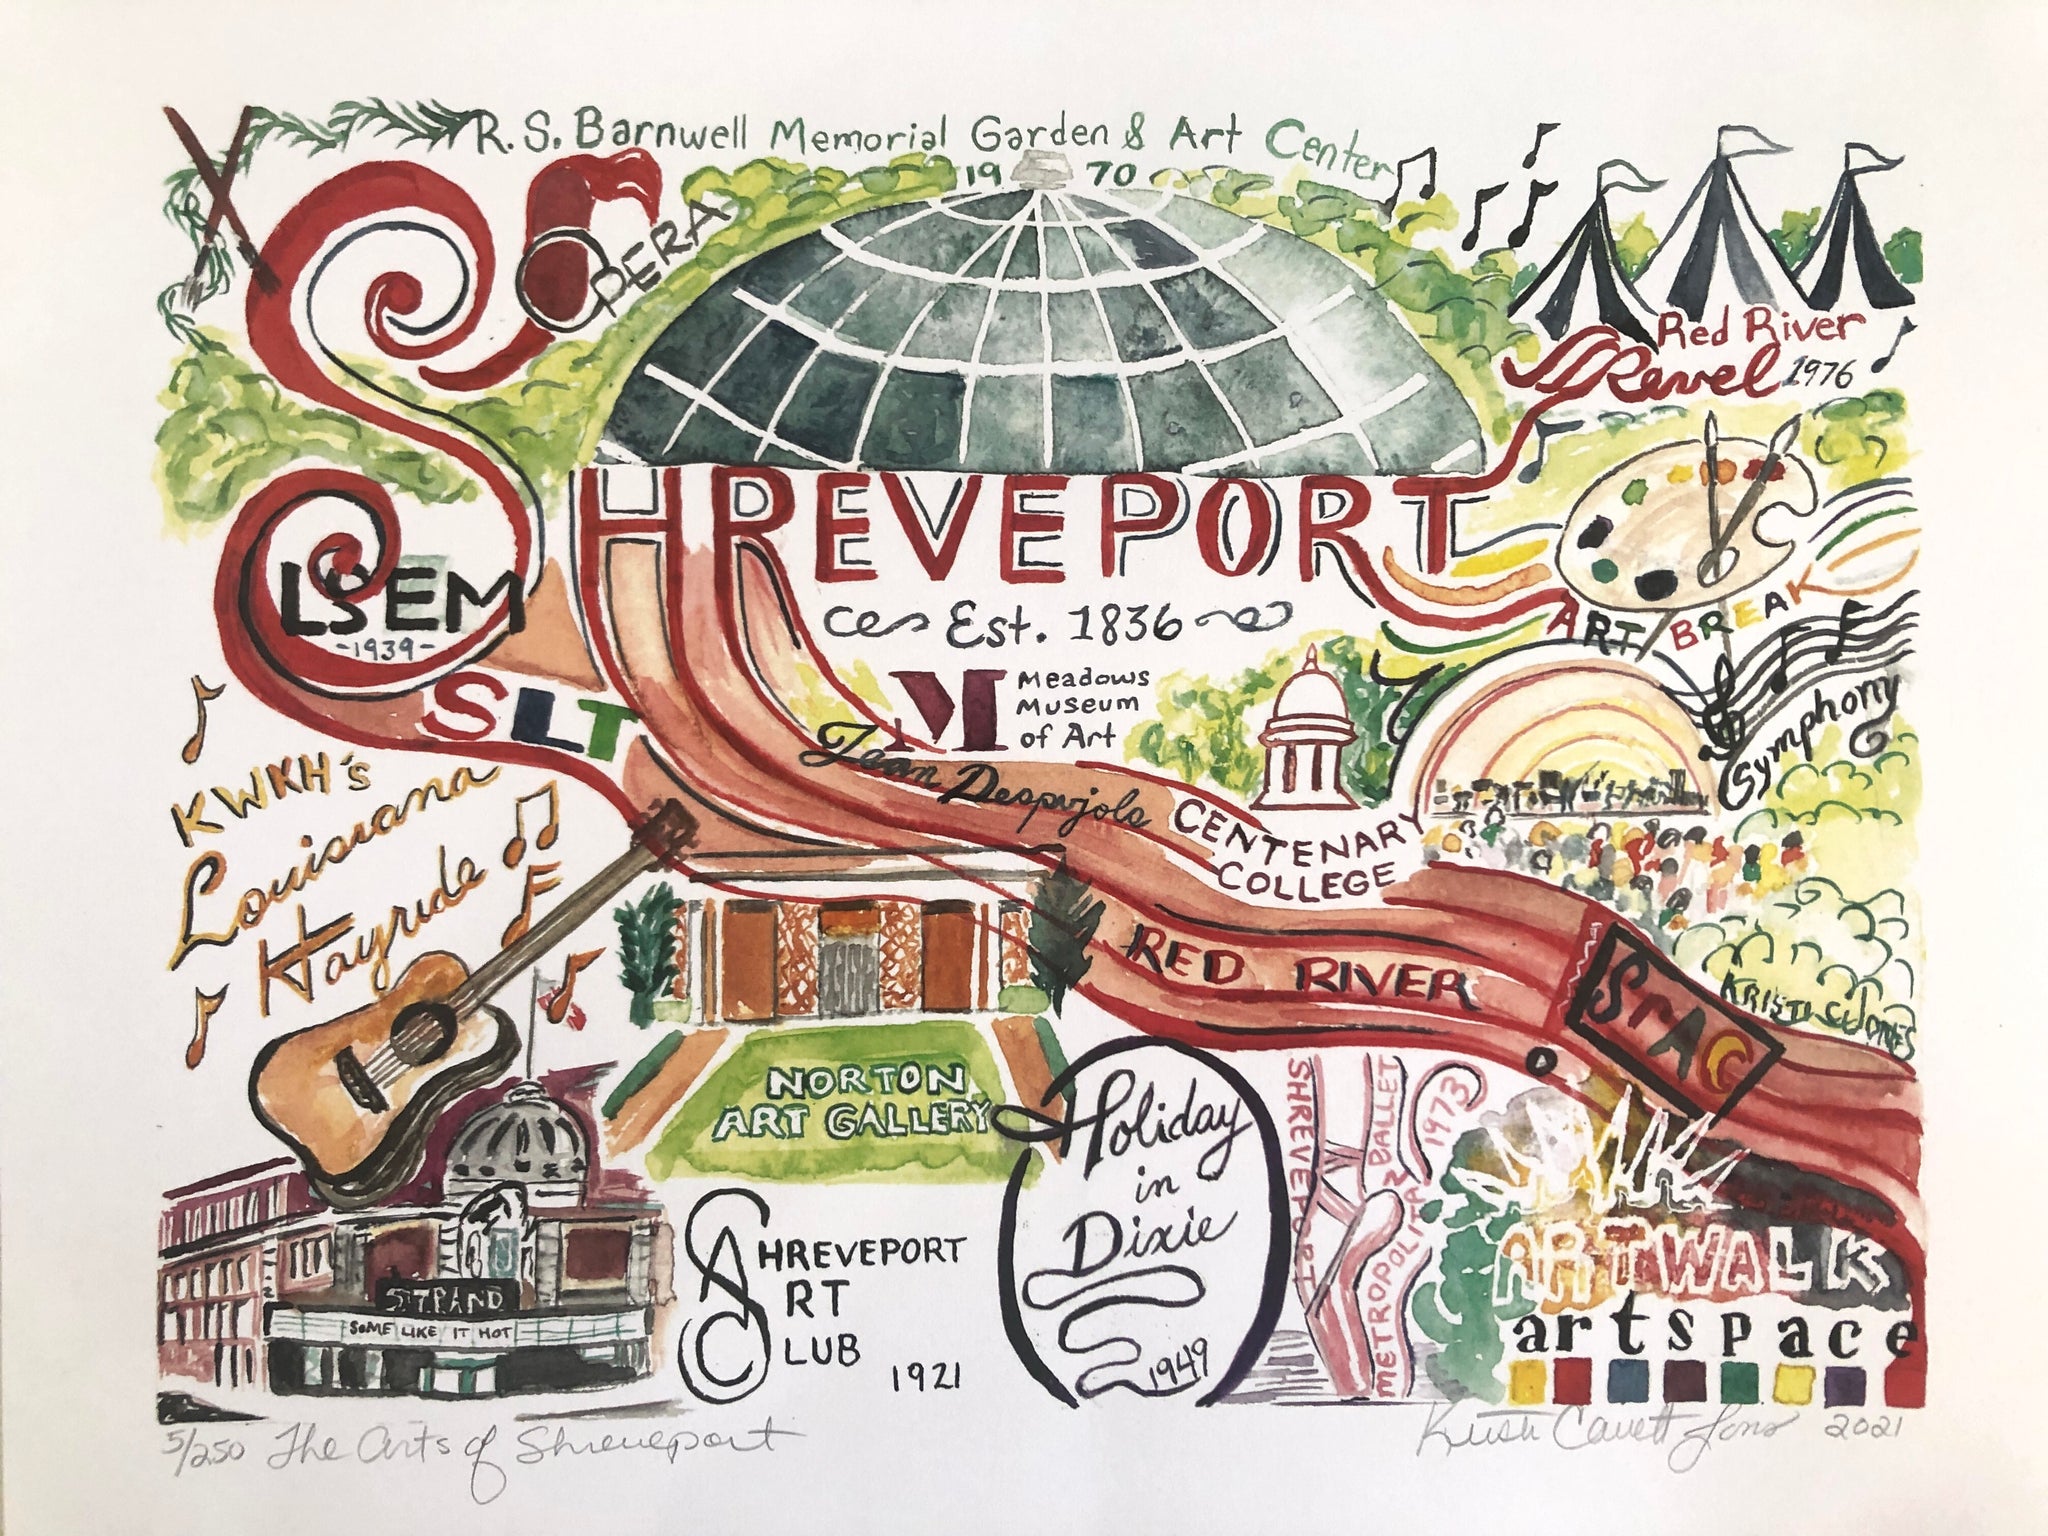 R. S. Barnwell Memorial Garden & Art Center
1970
OPERA
Red River
Revel 1976
SHREVEPORT
Est. 1836
LSEM
-1939-
SLT
ART BREAK
Symphony
M Meadows
Museum
of Art
Jean Despujols
CENTENARY
COLLEGE
KWKH's
Louisiana
Hayride
RED RIVER
SrAC
NORTON
ART GALLERY
Holiday
in
Dixie
1949
SHREVEPORT
METROPOLITAN BALLET
1973
ARTWALK
artspace
STRAND
SOME LIKE IT HOT
SHREVEPORT
ART
CLUB
1921
5/250 The Arts of Shreveport
Kristi Cavett Jones 2021